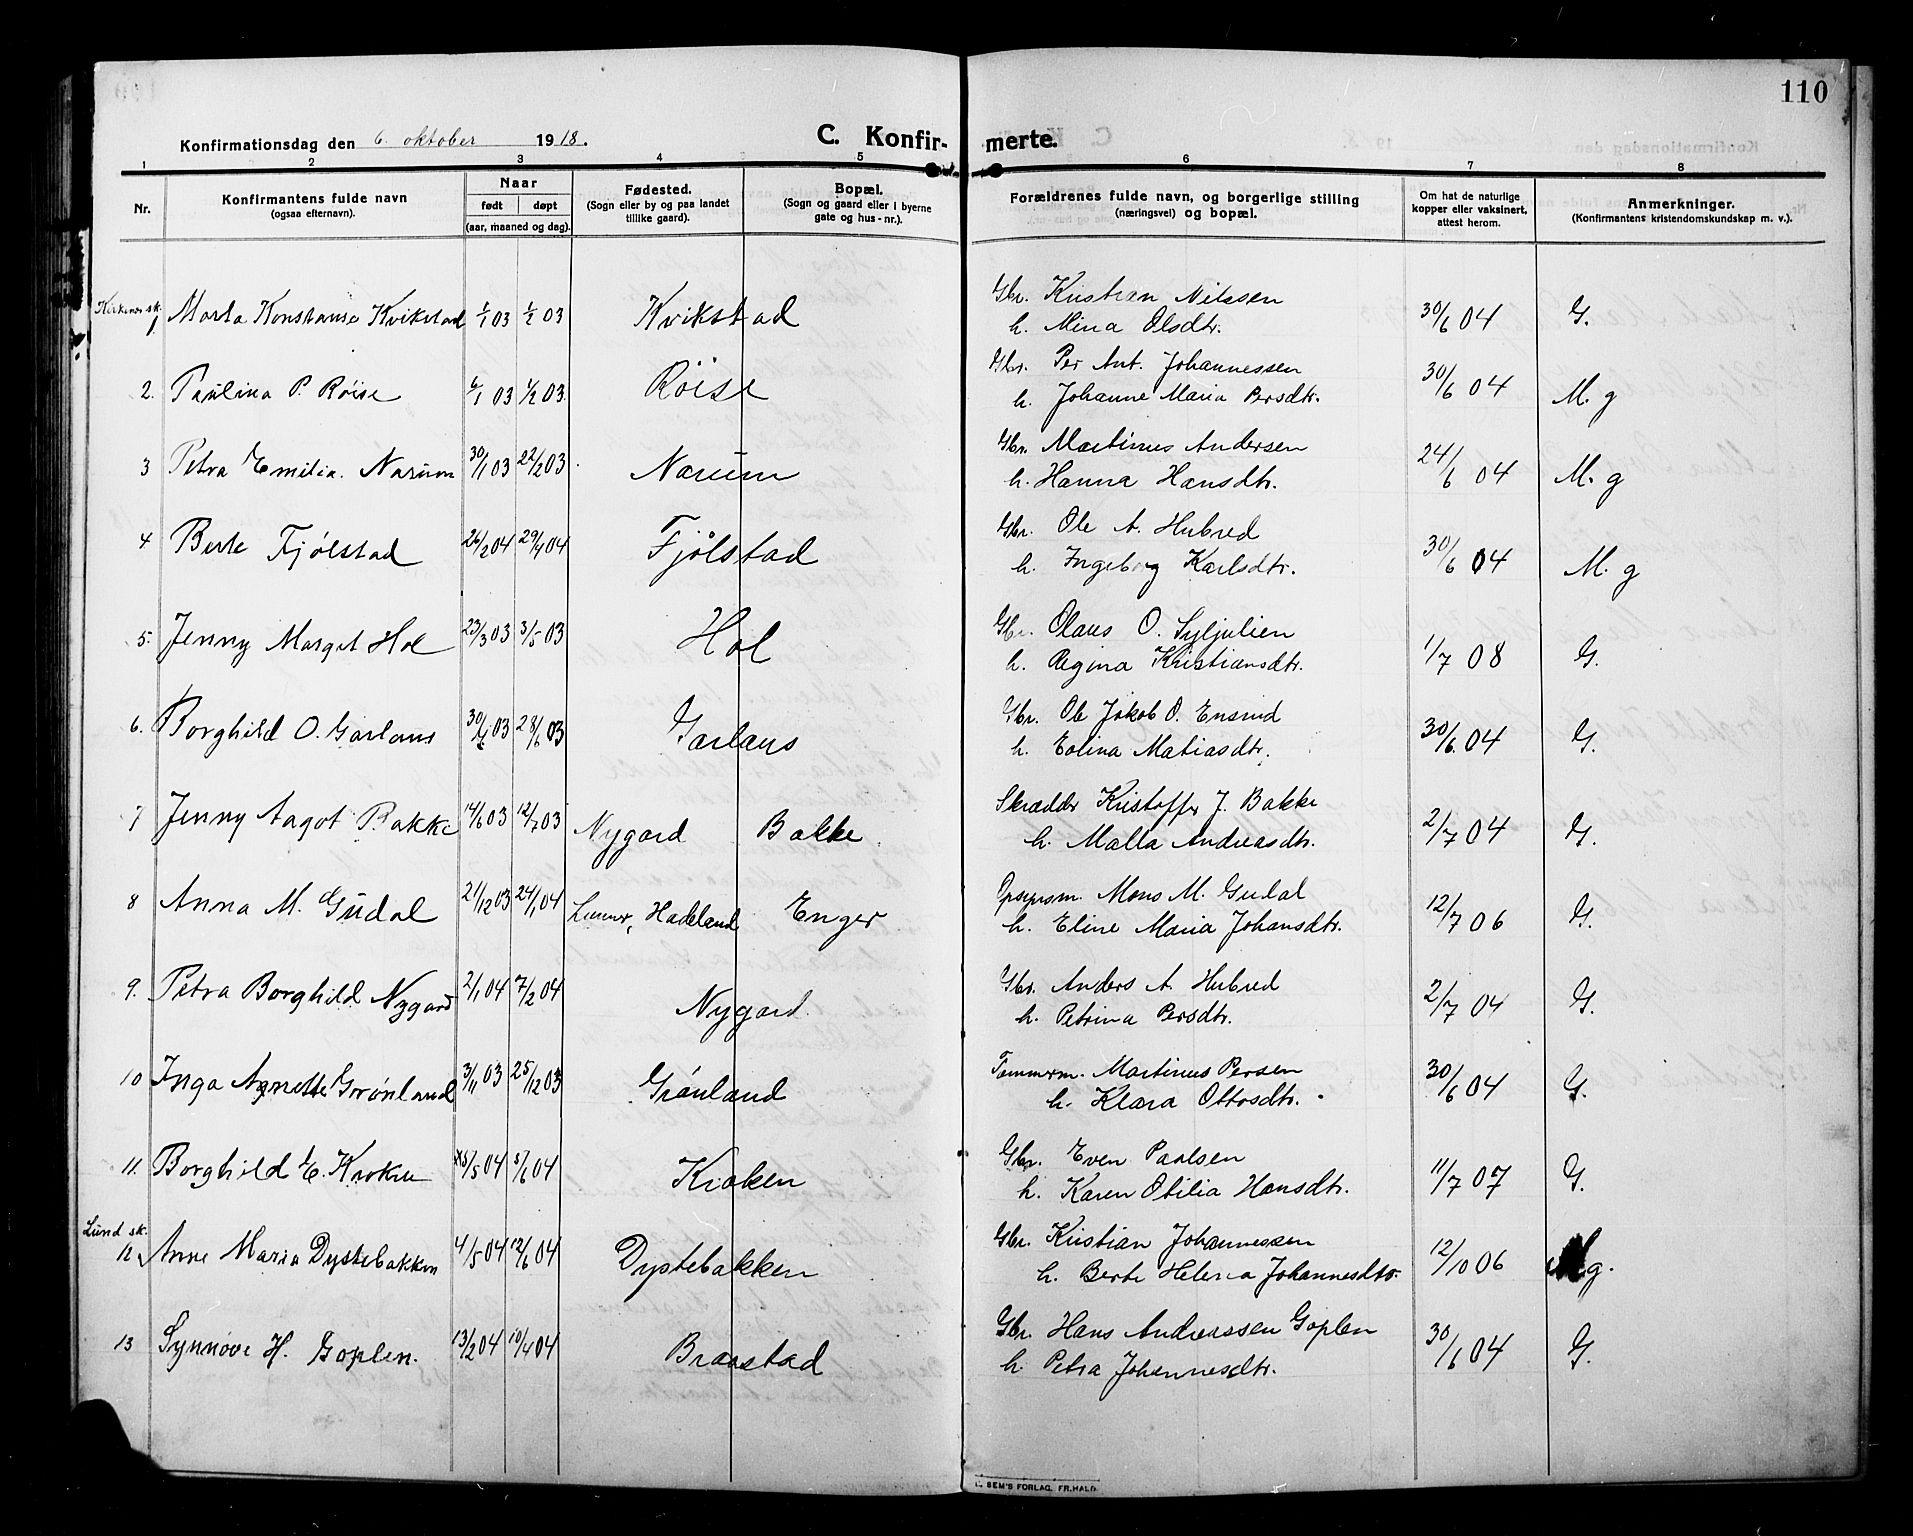 110
Konfirmationsdag den 6. oktober 1918. C. Konfir- merte.
1 2 3 4 5 6 7 8
Nr. Konfirmantens fulde navn (ogsaa efternavn). Naar født døpt (aar, maaned og dag). Fødested. (Sogn eller by og paa landet tillike gaard). Bopæl. (Sogn og gaard eller i byerne gate og hus-nr.). Forældrenes fulde navn, og borgerlige stilling (næringsvei) og bopæl. Om hat de naturlige kopper eller vaksinert, attest herom. Anmerkninger. (Konfirmantens kristendomskundskap m. v.).
Kirkenær sk.
1 Marta Konstanse Kvikstad 1/1 03 1/2 03 Kvikstad Gbr. Kristian Nilssen 30/6 04 G.
h. Mina Olsdtr.
2. Paulina P. Röise 6/1 03 1/2 03 Röise Gbr. Per Ant. Johannessen 30/6 04 M. g
h. Johanne Maria Persdtr.
3 Petra Emilia. Narum 30/1 03 22/2 03 Narum Gbr. Martinus Andersen 24/6 04 M. g
h. Hanna Hansdtr.
4 Berte Fjølstad 26/2 04 29/4 04 Fjølstad Gbr. Ole A. Hubred 30/6 04 M. g
h. Ingeborg Karlsdtr.
5. Jenny Margit Hol 23/3 03 3/5 03 Hol Gbr. Olaus O. Syljulien 1/7 08 G.
h. Regina Kristiansdtr.
6. Borghild O. Garlaus 30/4 03 28/6 03 Garlaus Gbr. Ole Jakob O. Ensrud 30/6. 04 G.
h. Eolina Matiasdtr.
7 Jenny Aagot Bakke 14/6 03 12/7 03 Nygard Bakke Skrædder Kristoffer J. Bakke 2/7 04 G.
h. Malla Andreasdtr.
8 Anna M. Gudal 21/12 03 24/1 04 Lunner, Hadeland Enger Opsynsm. Mons M. Gudal 12/7 06 G.
h. Eline Maria Johansdtr.
9. Petra Borghild Nygard 2/1 04 7/2 04 Nygard. Gbr. Anders A. Hubred 2/7 04 G.
h. Petrina Persdtr.
10 Inga Agnette Grönland 3/11 03 25/12 03 Grönland Tømmerm. Martinus Persen 30/6 04 G.
h. Klara Ottosdtr.
11. Borghild E. Kroken 5/5 04 5/6 04 Kroken Gbr. Even Paulsen 11/7 07 G.
h. Karen Otilia Hansdtr.
Lund sk.
12 Anne Maria Dystebakken 4/5 04 12/6 04 Dystebakken Gbr. Kristian Johannessen 12/10 06 M g.
h. Berte Helena Johannesdtr.
13 Synnøve H. Goplen. 13/2 04 10/4 04 Braastad Gbr. Hans Andreassen Goplen 30/6 04 G.
h. Petra Johannesdtr.
SEM'S FORLAG, FR.HALD